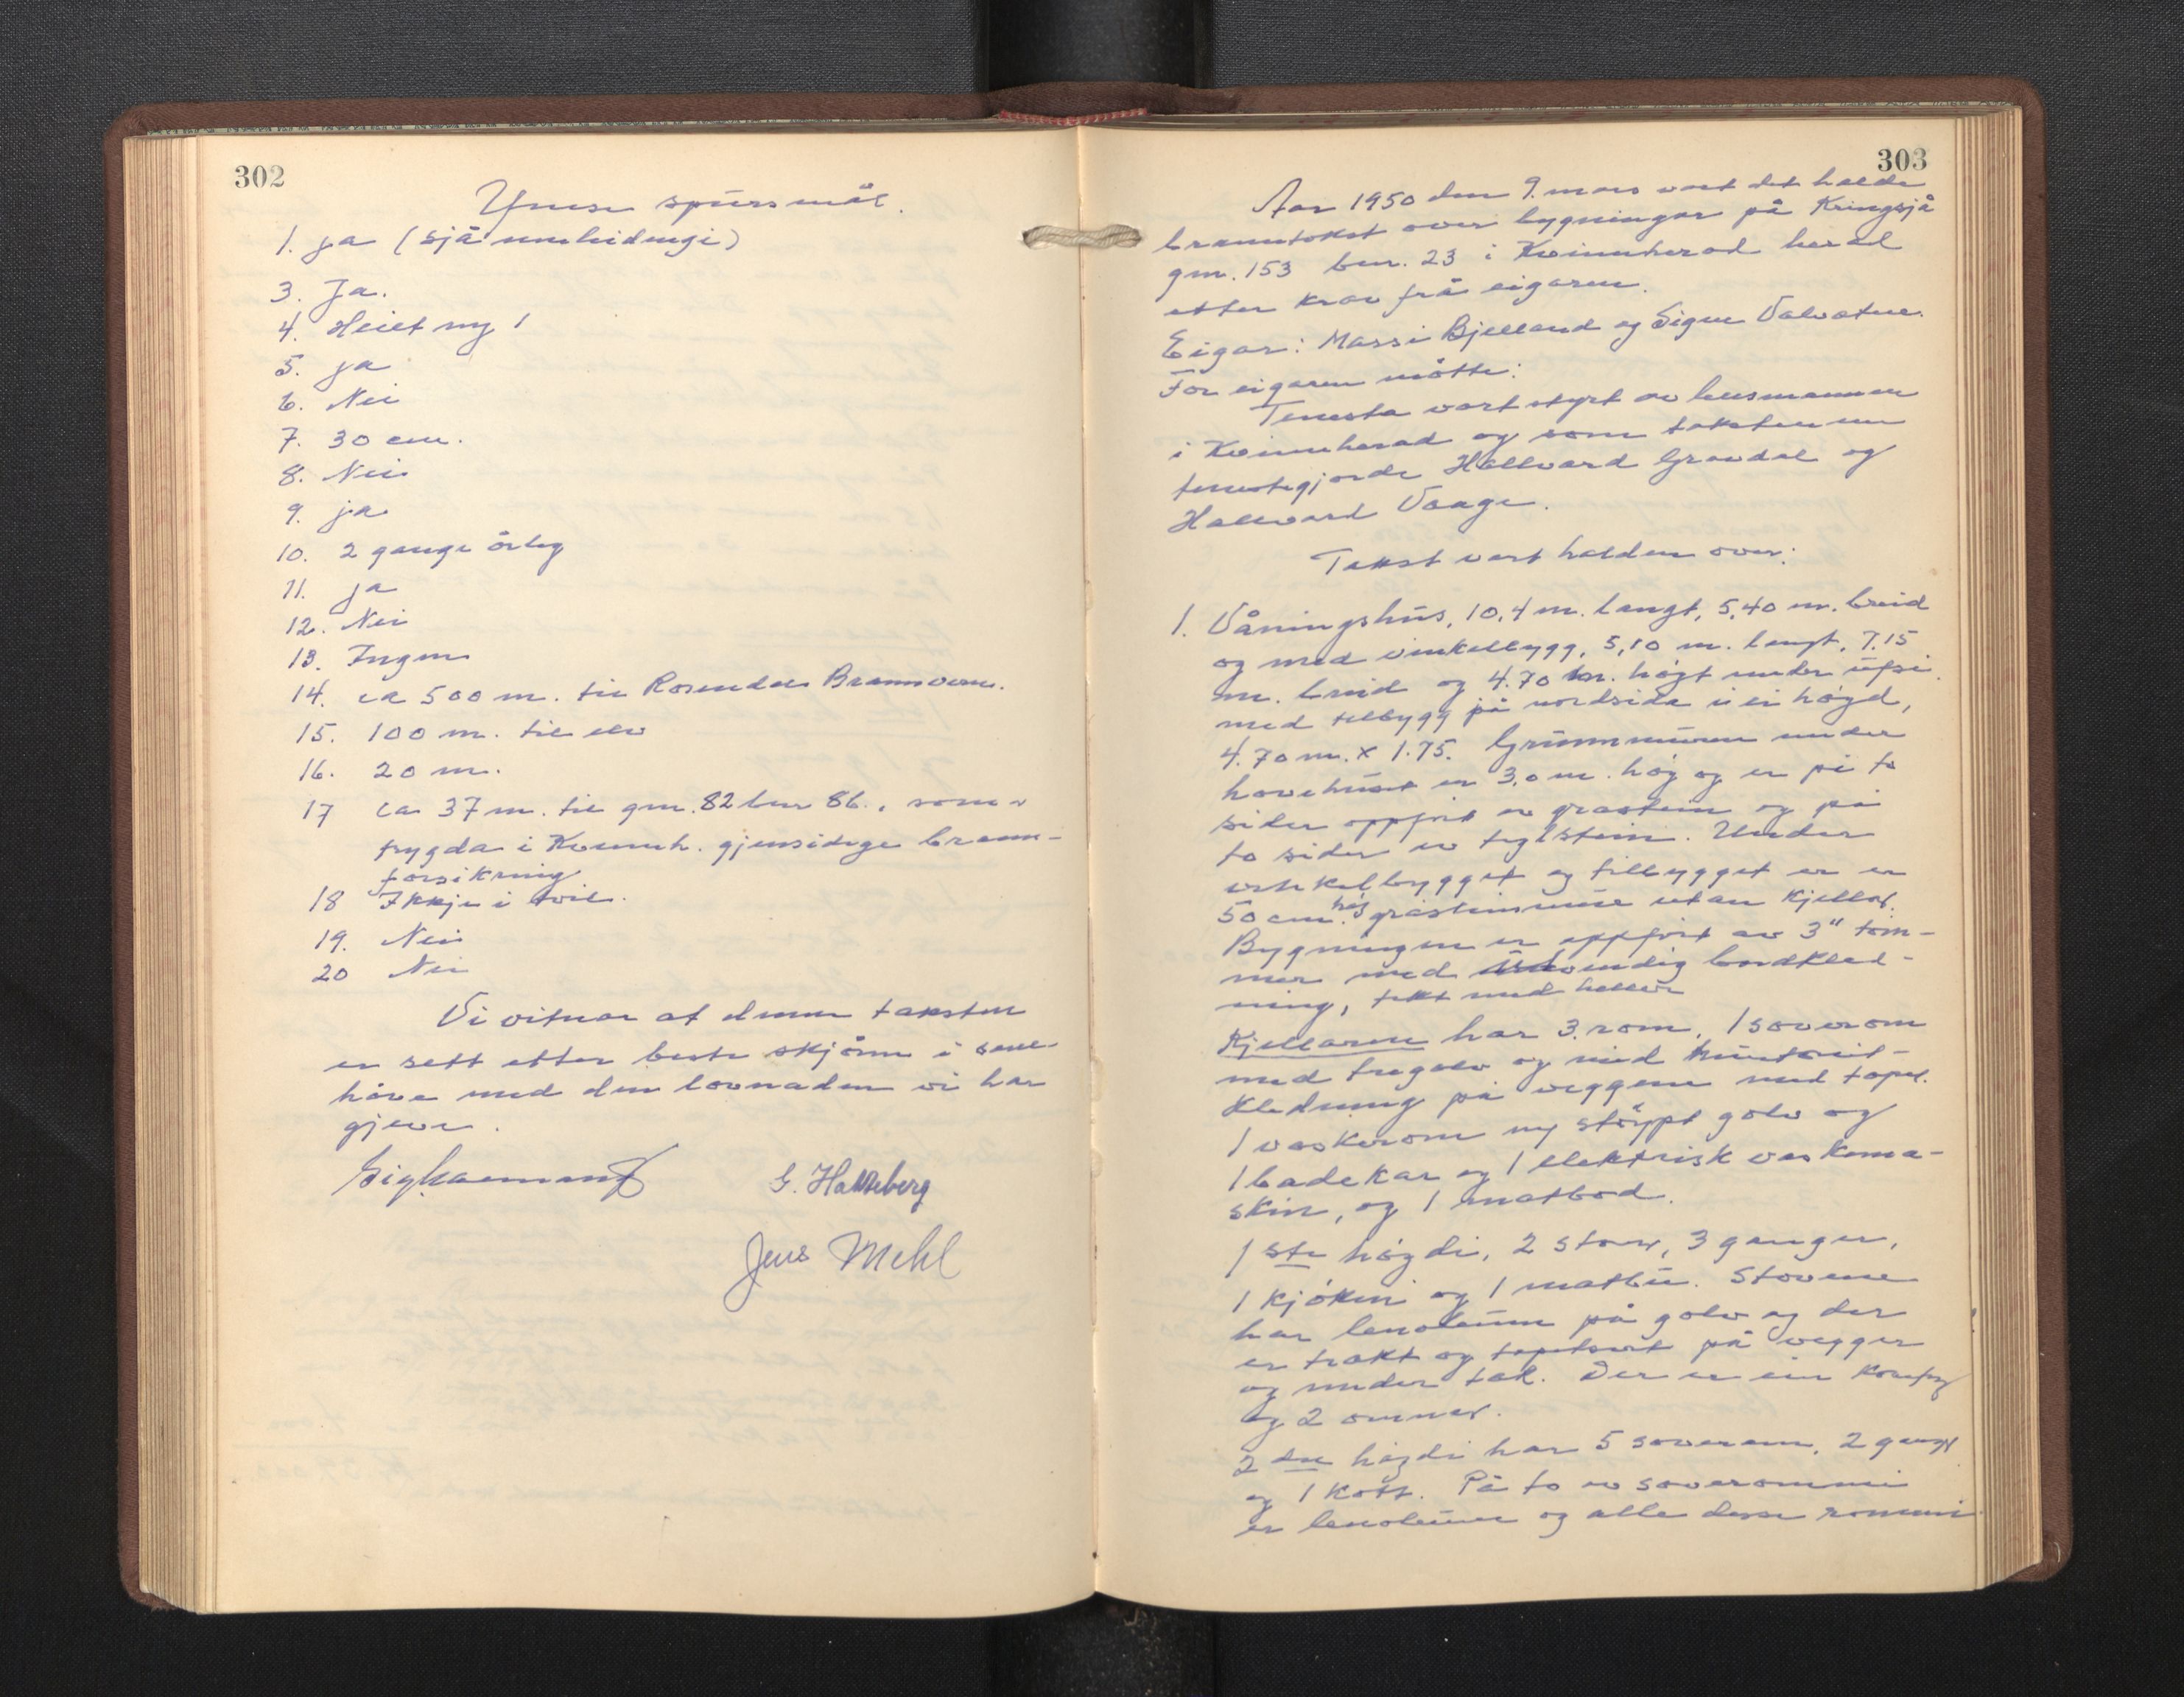 302
Ymse spursmål.
1. ja (sjå umhidingi)
3. Ja.
4. Heilt ny 1
5. ja
6. Nei
7. 30 cm.
8. Nei
9. ja
10. 2 gange årleg
11. ja
12. Nei
13. Ingen
14. ca 500 m. til Rosendal Brannvern.
15. 100 m. til elv
16. 20 m.
17 ca 37 m. til gnr. 82 bnr 86., som
trygda i Kvinnh. gjensidige brann-
forsikring
18 Ikkje i tvil.
19. Nei
20 Nei
Vi vitnar at denne taksten
er sett etter beste skjønn i sam-
håve med den lovnaden vi har
gjeve.
G. Hatteberg
Jens Mehl
303
Aar 1950 den 9. mars vart det halde
branntakst over bygningar på Kringsjå
gnr. 153 bnr. 23 i Kvinnherad herad
etter krav frå eigaren.
Eigar: Massi Bjelland og Signe Valvatne.
For eigaren møtte:
Tenesta vart styrt av lensmannen
i Kvinnherad og som takstmenn
tenestegjorde Hallvard Gravdal og
Hallvard Vaage.
Takst vart halden over:
1. Våningshus, 10,4 m. langt, 5,40 m. breid
og med vinkelbygg, 5,10 m. langt, 7.15
m. breid og 4.70 m. høgt under ufsi
med tilbygg på nordsida i ei høgd,
4.70 m. x 1.75. Grunnmuren under
hovehuset er 3,0 m. høg og er på to
sider oppført av gråstein og på
to sider av teglstein. Under
vinkelbygget og tilbygget er er
50 cm. høg gråsteinmur utan kjellar.
Bygningen er oppført av 3" tøm-
mer med utvendig bordkled-
ning, tekt med heller
Kjellaren har 3. rom, 1 soverom
med tregolv og med huntonit-
kledning på veggene med tapet.
1 vaskerom ny støypt golv og
1 badekar og 1 elektrisk vaskema-
skin, og 1 matbod.
1ste høgdi, 2 stover, 3 ganger,
1 kjøken og 1 matbu. Stovene
har lenoleum på golv og der
er trakt og tapetsert på vegger
og under tak. Der er ein komfyr
og 2 omner.
2dre høgdi har 5 soverom, 2 ganger
og 1 kott. På to av soverommi
er lenoleum og alle desse rommi